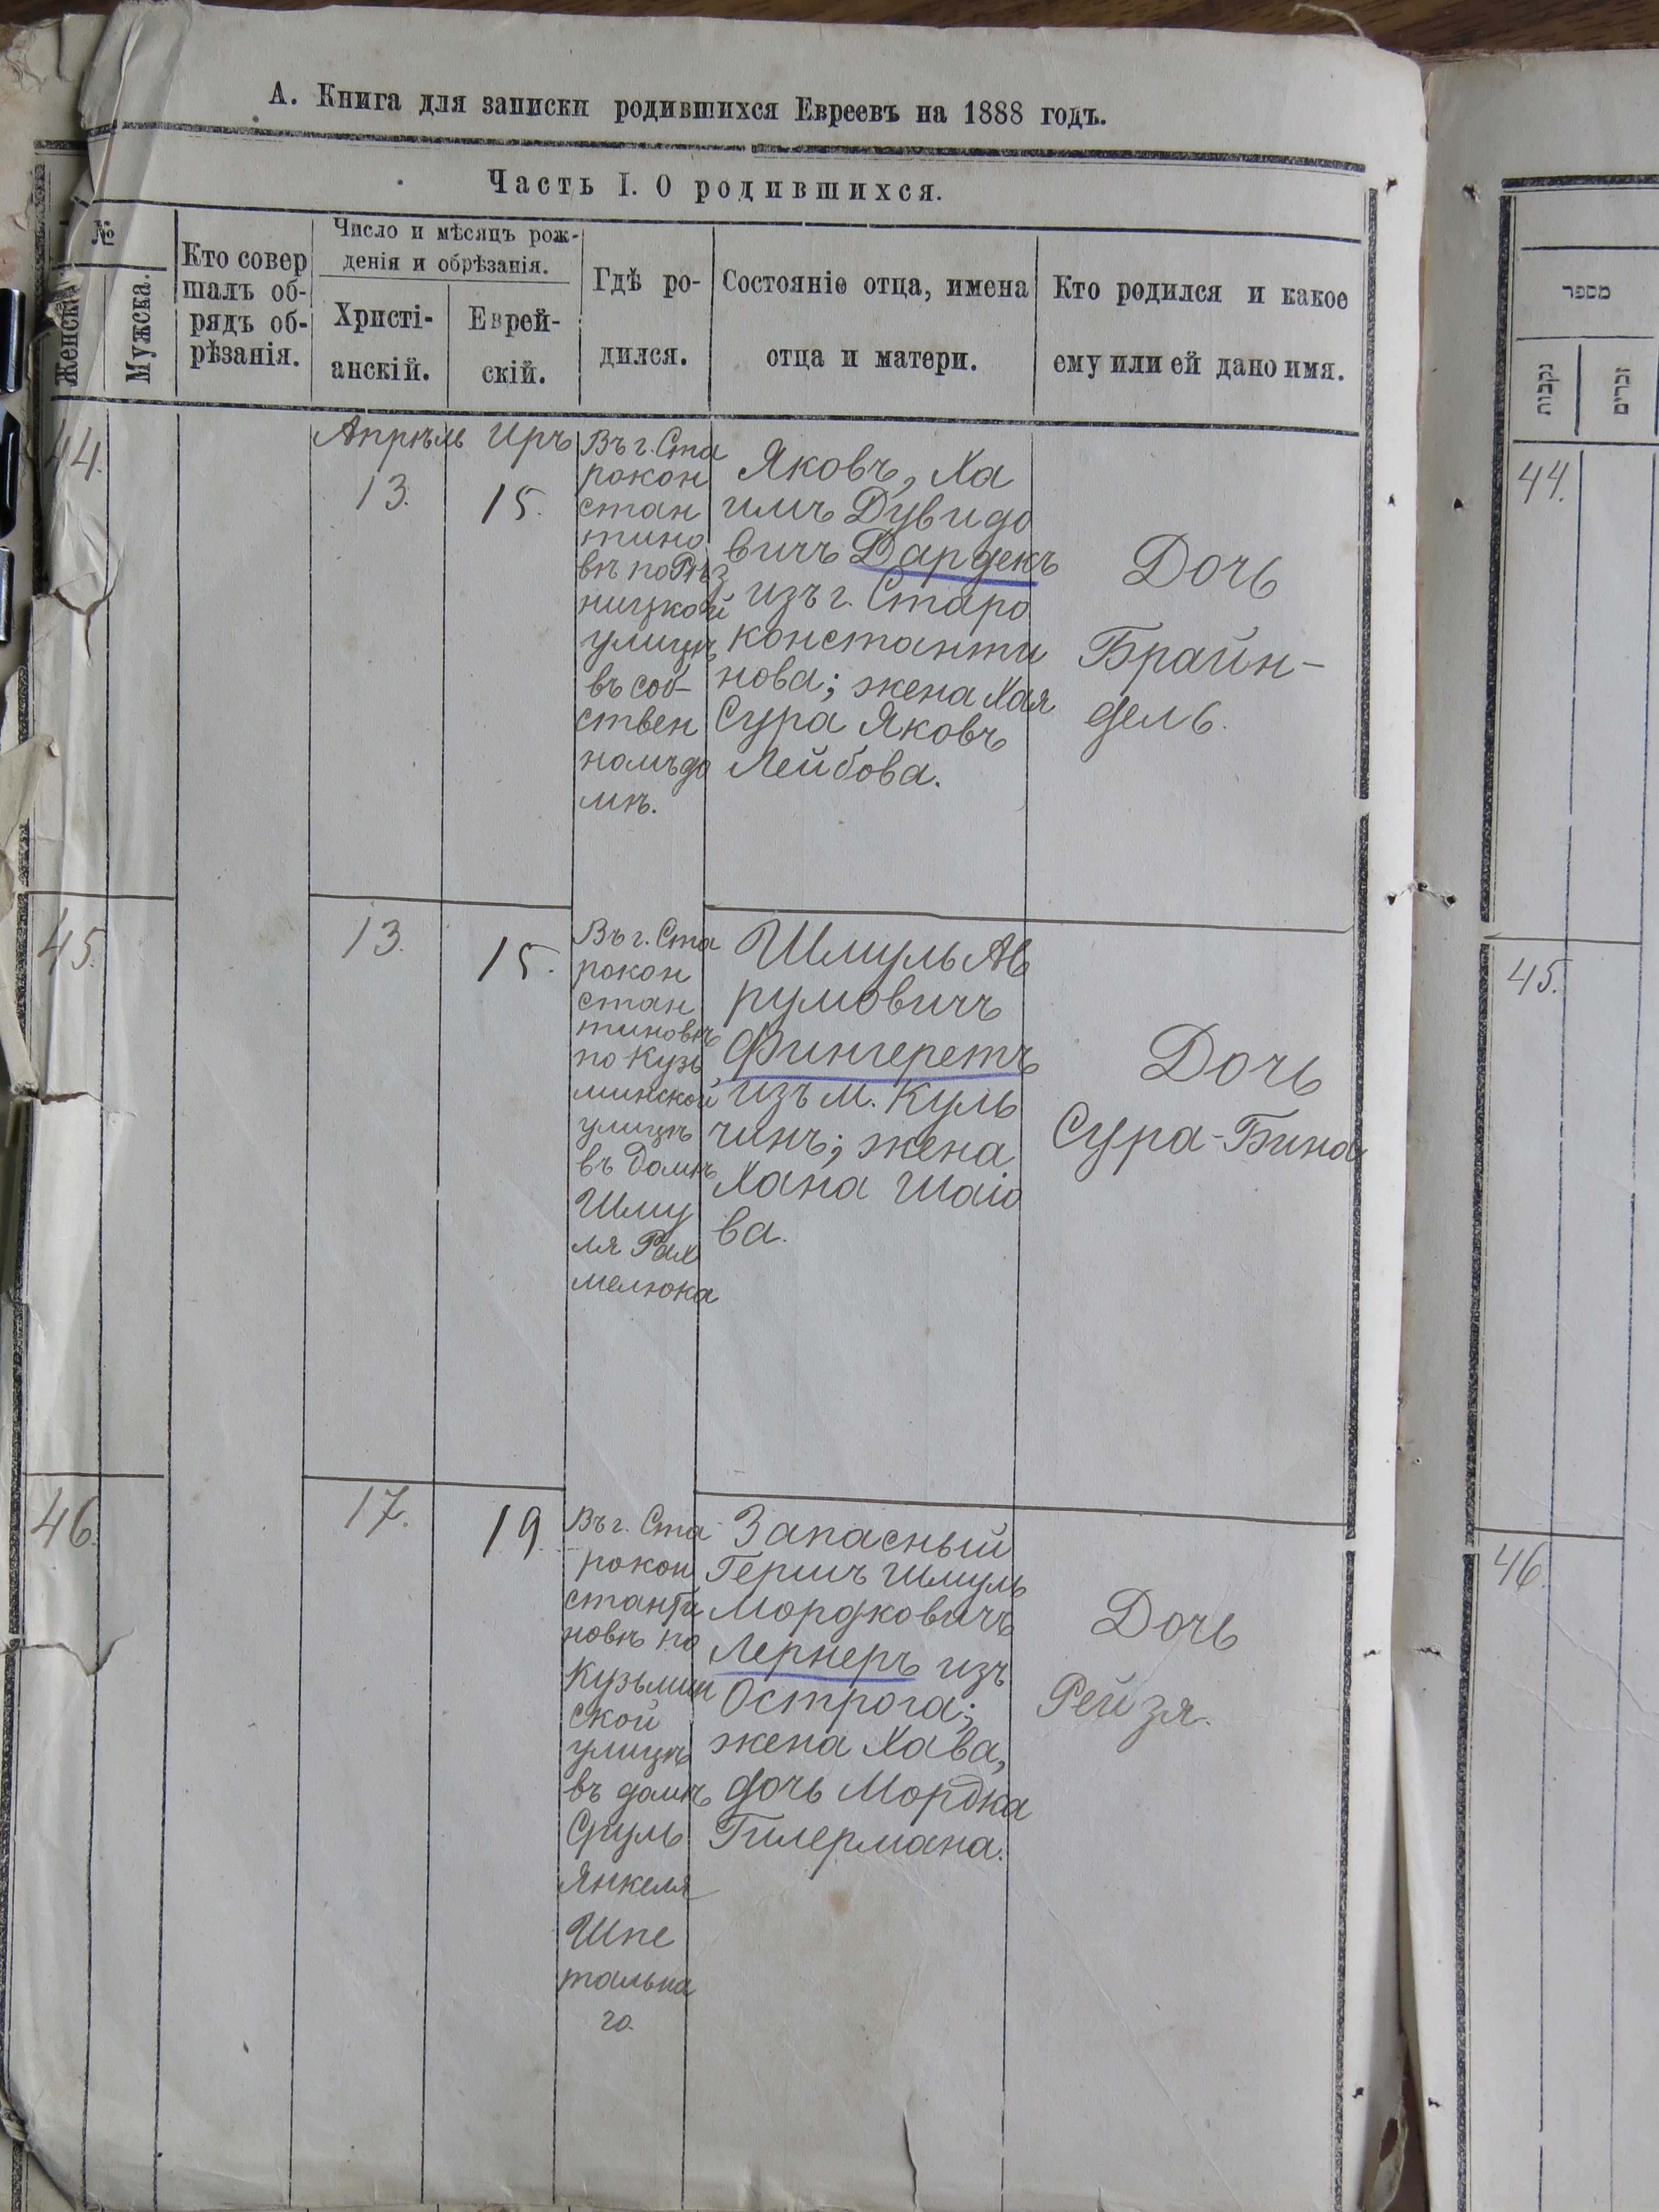 А. Книга для записки родившихся Евреевъ на 1888 годъ.
Часть I. О родившихся.
№
Женска.
Мужска.
Кто совер
шалъ об-
рядъ об-
рѣзанія.
Число и мѣсяцъ рож-
денія и обрѣзанія.
Христі-
анскій.
Еврей-
скій.
Гдѣ ро-
дился.
Состояніе отца, имена
отца и матери.
Кто родился и какое
ему или ей дано имя.
44.
Апрѣль
13.
Иръ
15.
Въ г. Ста
рокон
стан
тино
вѣ по
ницкой
улицѣ
въ соб-
ствен
номъ до
мѣ.
Яковъ, Ха
имъ Дувидо
вичъ Дардекъ
изъ г. Старо
константи
нова; жена Хая
Сура Яковъ
Лейбова.
Дочь
Брайн-
дель.
45.
13.
15.
Въ г. Ста
рокон
стан
тиновѣ
по Кузь
минской
улицѣ
въ домѣ
Шму
ля Рах
мелюка
Шмуль Ав
румовичъ
Фингеретъ
изъ м. Куль
чинъ; жена
Хана Шаіо
ва.
Дочь
Сура-Бина
46.
17.
19.
Въ г. Ста
рокон
станти
новѣ по
Кузьмин
ской
улицѣ
въ домѣ
Сруль
Янкеля
Шпе
тальна
го.
Запасный
Гершъ Шмуль
Мордковичъ
Лернеръ изъ
Острога;
жена Хава,
дочь Мордка
Гилермана.
Дочь
Рейзя.
מספר
נקבות
זכרים
44.
45.
46.